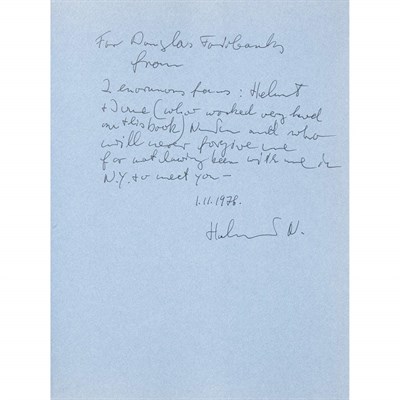 For Douglas Fairbanks
from
2 enormous fans : Helmut
+ June (who worked very hard
on this book) Newton and who
will never forgive me
for not having been with me in
N.Y. to meet you —
1.11.1978.
Helmut N.